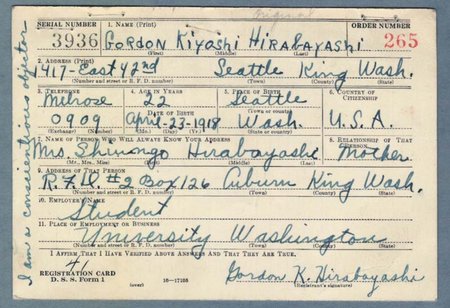 Original
SERIAL NUMBER 1. NAME (Print) ORDER NUMBER
3936 GORDON KIYOSHI HIRABAYASHI 265
(First) (Middle) (Last)
2. ADDRESS (Print)
417-East 42nd Seattle King Wash.
(Number and street or R. F. D. number) (Town) (County) (State)
3. TELEPHONE 4. AGE IN YEARS 5. PLACE OF BIRTH 6. COUNTRY OF CITIZENSHIP
Melrose 22 Seattle
DATE OF BIRTH (Town or county)
0909 April-23-1918 Wash. U.S.A.
(Exchange) (Number) (Mo.) (Day) (Yr.) (State or country)
7. NAME OF PERSON WHO WILL ALWAYS KNOW YOUR ADDRESS 8. RELATIONSHIP OF THAT PERSON
Mrs. Hirabayashi Mother
(Mr., Mrs., Miss) (First) (Middle) (Last)
9. ADDRESS OF THAT PERSON
R.F.D. #2 Box 126 Auburn King Wash.
(Number and street or R. F. D. number) (Town) (County) (State)
10. EMPLOYER'S NAME
Student
11. PLACE OF EMPLOYMENT OR BUSINESS
University Washington
(Number and street or R. F. D. number) (Town) (County) (State)
I AFFIRM THAT I HAVE VERIFIED ABOVE ANSWERS AND THAT THEY ARE TRUE.
41
REGISTRATION CARD
D. S. S. Form 1 (over) 16—17105
Gordon K. Hirabayashi
(Registrant's signature)
I am a conscientious objector